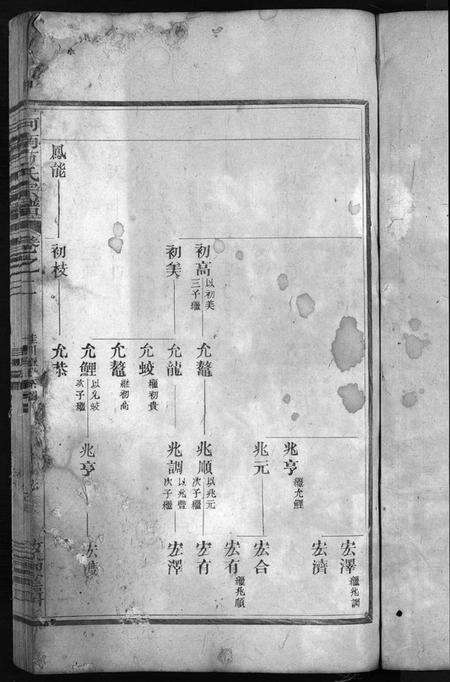 宏澤 繼兆調
宏濟
兆亨 繼允鯉
兆元
宏合
宏有 繼兆順
初高 以初美三子繼
允鼇
兆順 以兆元次子繼
宏有
初美
允龍
兆調 以兆豐次子繼
宏澤
允蛟 繼初貴
允鼇 繼初高
允鯉 以允蛟次子繼
兆亨
鳳能
初枝
允恭